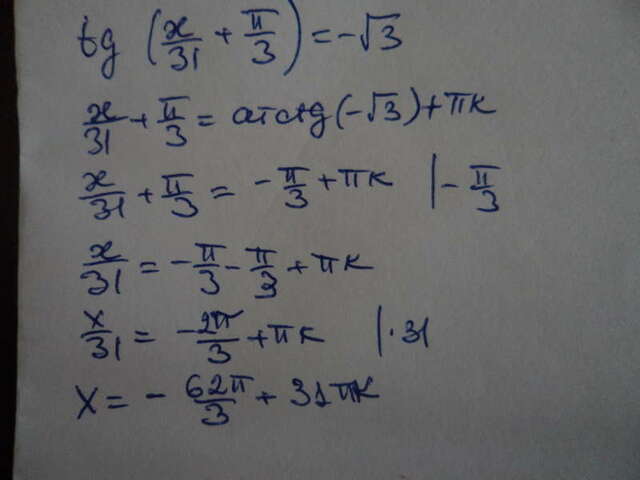 tg (x/31 + π/3) = -√3
x/31 + π/3 = arctg(-√3) + πк
x/31 + π/3 = -π/3 + πк | - π/3
x/31 = -π/3 - π/3 + πк
x/31 = -2π/3 + πк | · 31
x = - 62π/3 + 31πк